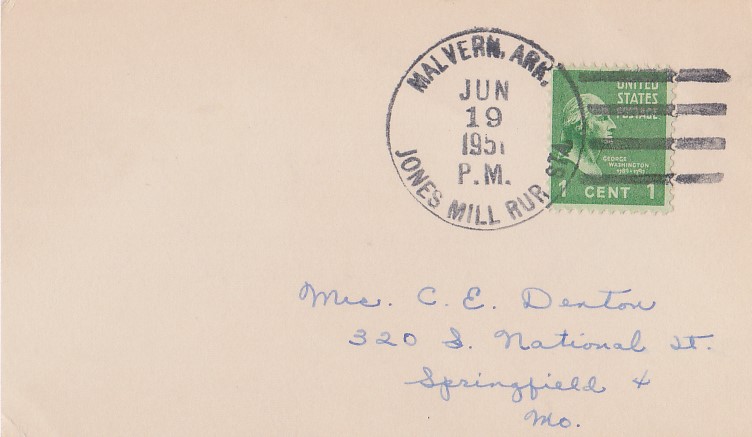 MALVERN, ARK.
JUN
19
1951
P.M.
JONES MILL RUR. STA.
UNITED
STATES
POSTAGE
GEORGE
WASHINGTON
1789-1797
1 CENT 1
Mrs. C. E. Denton
320 S. National St.
Springfield 4
Mo.